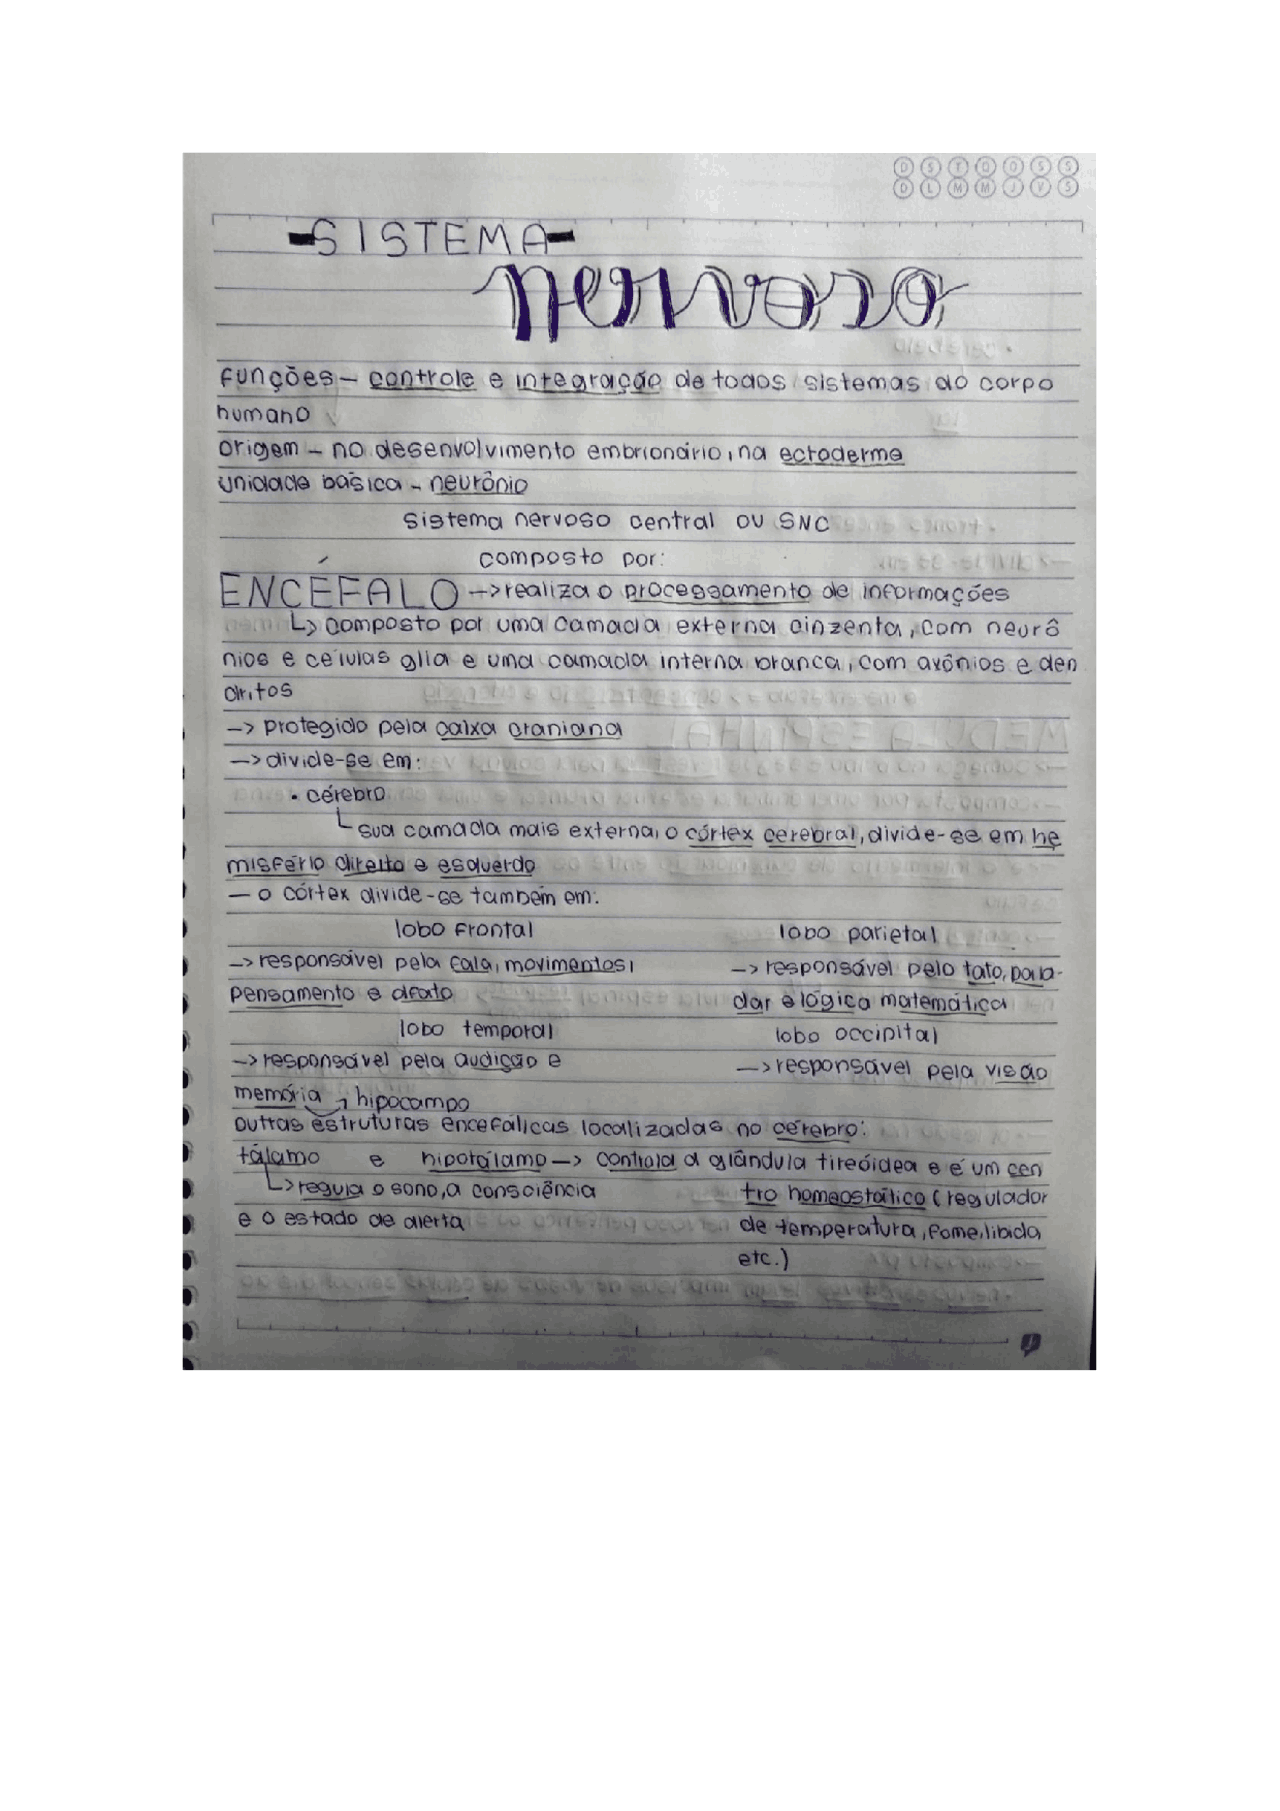 D S T Q Q S S
D L M M J V S
SISTEMA
nervoso
funções - controle e integração de todos sistemas do corpo
humano
origem - no desenvolvimento embrionário, na ectoderme
unidade básica - neurônio
sistema nervoso central ou SNC
composto por:
ENCÉFALO -> realiza o processamento de informações
↳ composto por uma camada externa cinzenta, com neurô
nios e células glia e uma camada interna branca, com axônios e den
dritos
-> protegido pela caixa craniana
-> divide-se em:
• cérebro
sua camada mais externa, o córtex cerebral, divide-se em he
misfério direito e esquerdo
- o córtex divide-se também em:
lobo frontal
-> responsável pela fala, movimentos,
pensamento e olfato
lobo parietal
-> responsável pelo tato, pala-
dar e lógica matemática
lobo temporal
-> responsável pela audição e
memória, hipocampo
lobo occipital
-> responsável pela visão
outras estruturas encefálicas localizadas no cérebro:
tálamo e hipotálamo -> controla a glândula tireóidea e é um cen
tro homeostático (regulador
de temperatura, fome, libido,
etc.)
↳ regula o sono, a consciência
e o estado de alerta